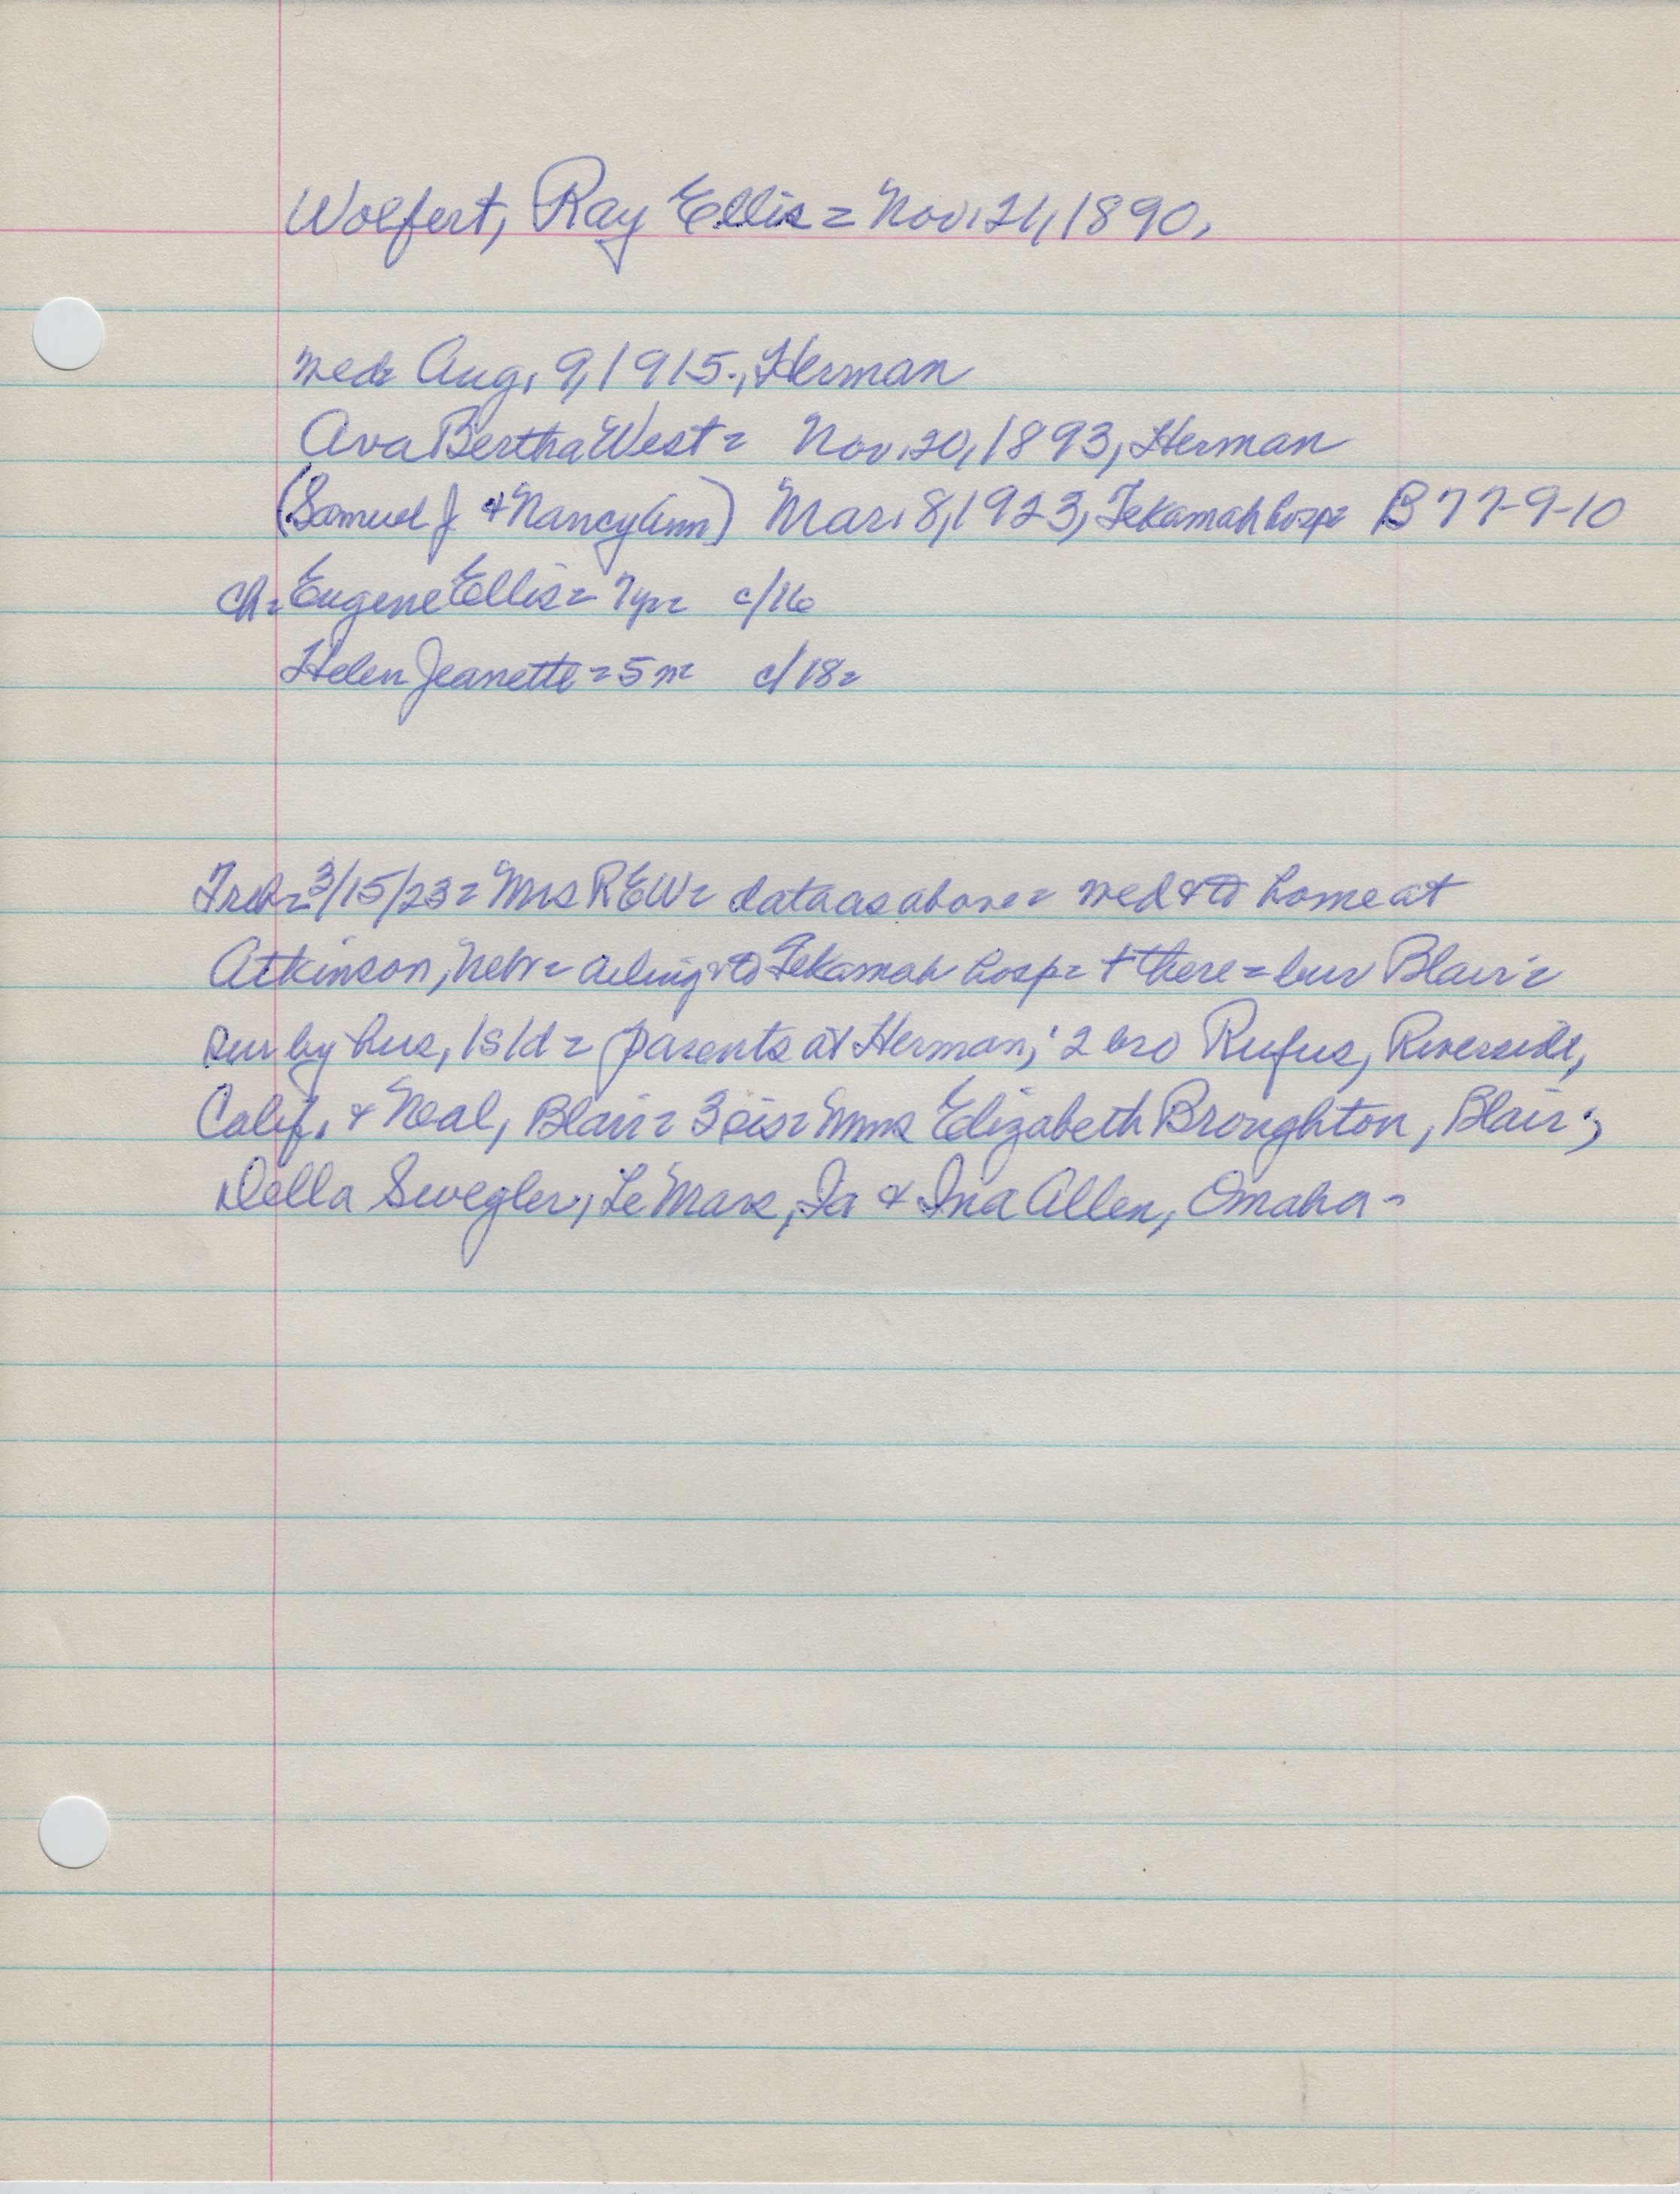 Wolfert, Ray Ellis = Nov. 21, 1890,
wed= Aug. 9, 1915., Herman
Ava Bertha West = Nov. 20, 1893, Herman
(Samuel J. + Nancy Ann) Mar. 8, 1923, Tekamah hosp= B 77-9-10
Ch= Eugene Ellis = 7yr= c/16
Helen Jeanette = 5 m= c/18=
3/15/23 = Mrs REW= data as above = wed & to home at
Atkinson, Nebr = ailing & to Tekamah hosp = + there = bur Blair =
sur by hus, 1s 1d = parents at Herman; 2 bro Rufus, Riverside,
Calif. & Neal, Blair = 3 sis = Mms Elizabeth Broughton, Blair;
Della Swegler, Le Mars, Ia & Ina Allen, Omaha -